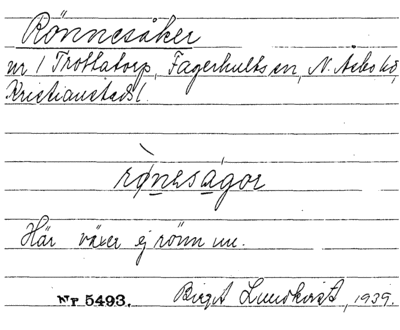 Rönnesåker
nr 1 Trottatorp, Fagerhults sn, N. Åsbo hd,
Kristianstads l.
rǿnesagor
Här växer ej rönn nu.
Nr 5493. Birgit Lundkvist, 1939.